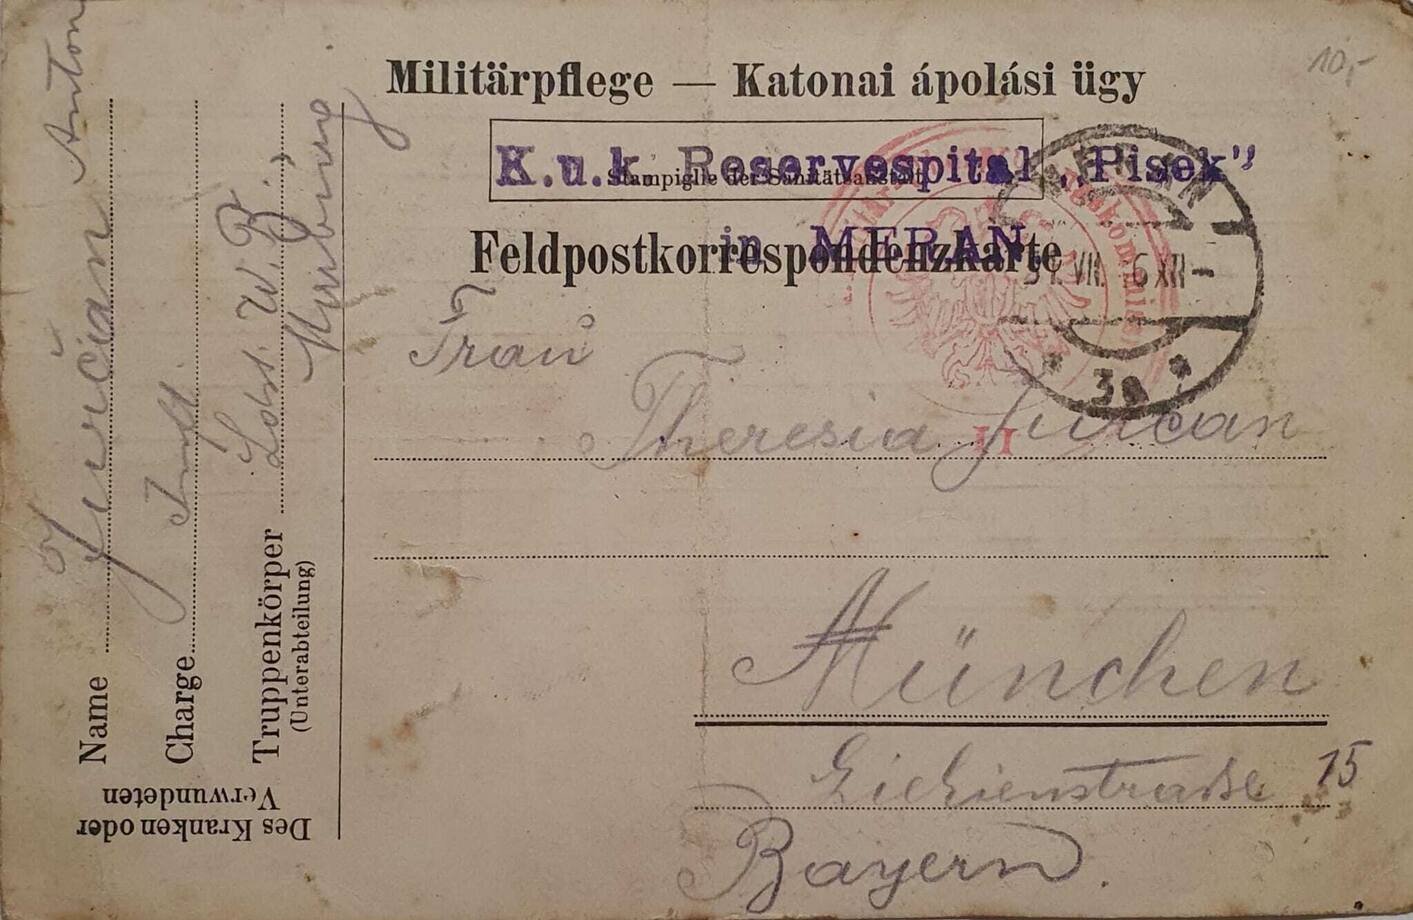 10,-
Militärpflege — Katonai ápolási ügy
K.u.k. Reservespital „Pisek”
Stampiglie der Sanitätsanstalt
in MERAN
Feldpostkorrespondenzkarte
MERAN
VII. 16 XII-
* 3a *
II
Frau
Theresia Jurcan
München
15
Bayern.
Name Jurcian Anton
Charge Inft.
Truppenkörper
(Unterabteilung)
Des Kranken oder
Verwundeten